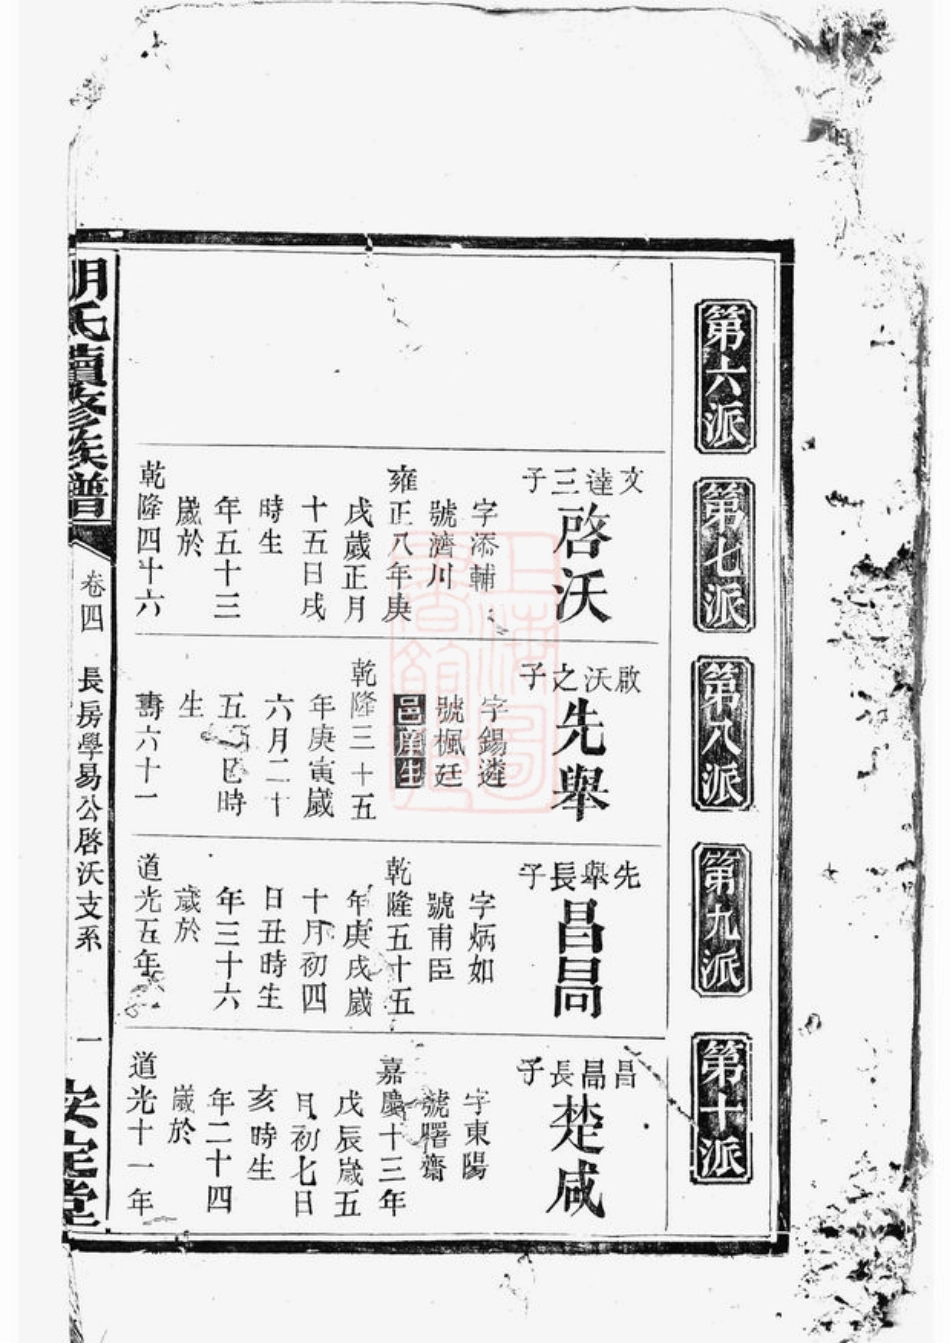 第六派
第七派
第八派
第九派
第十派
文達三子
啓沃
字添輔
號濟川
雍正八年庚
戌歲正月
十五日戌
時生
年五十三
歲於
乾隆四十六
啟沃之子
先舉
字錫遴
號楓廷
邑庠生
乾隆三十五
年庚寅歲
六月二十
五日巳時
生
壽六十一
先舉長子
昌
字炳如
號甫臣
乾隆五十五
年庚戌歲
十月初四
日丑時生
年三十六
歲於
道光五年
昌長子
楚咸
字東陽
號曙齋
嘉慶十三年
戊辰歲五
月初七日
亥時生
年二十四
歲於
道光十一年
胡氏續修族譜
卷四
長房學易公啓沃支系
一
安定堂